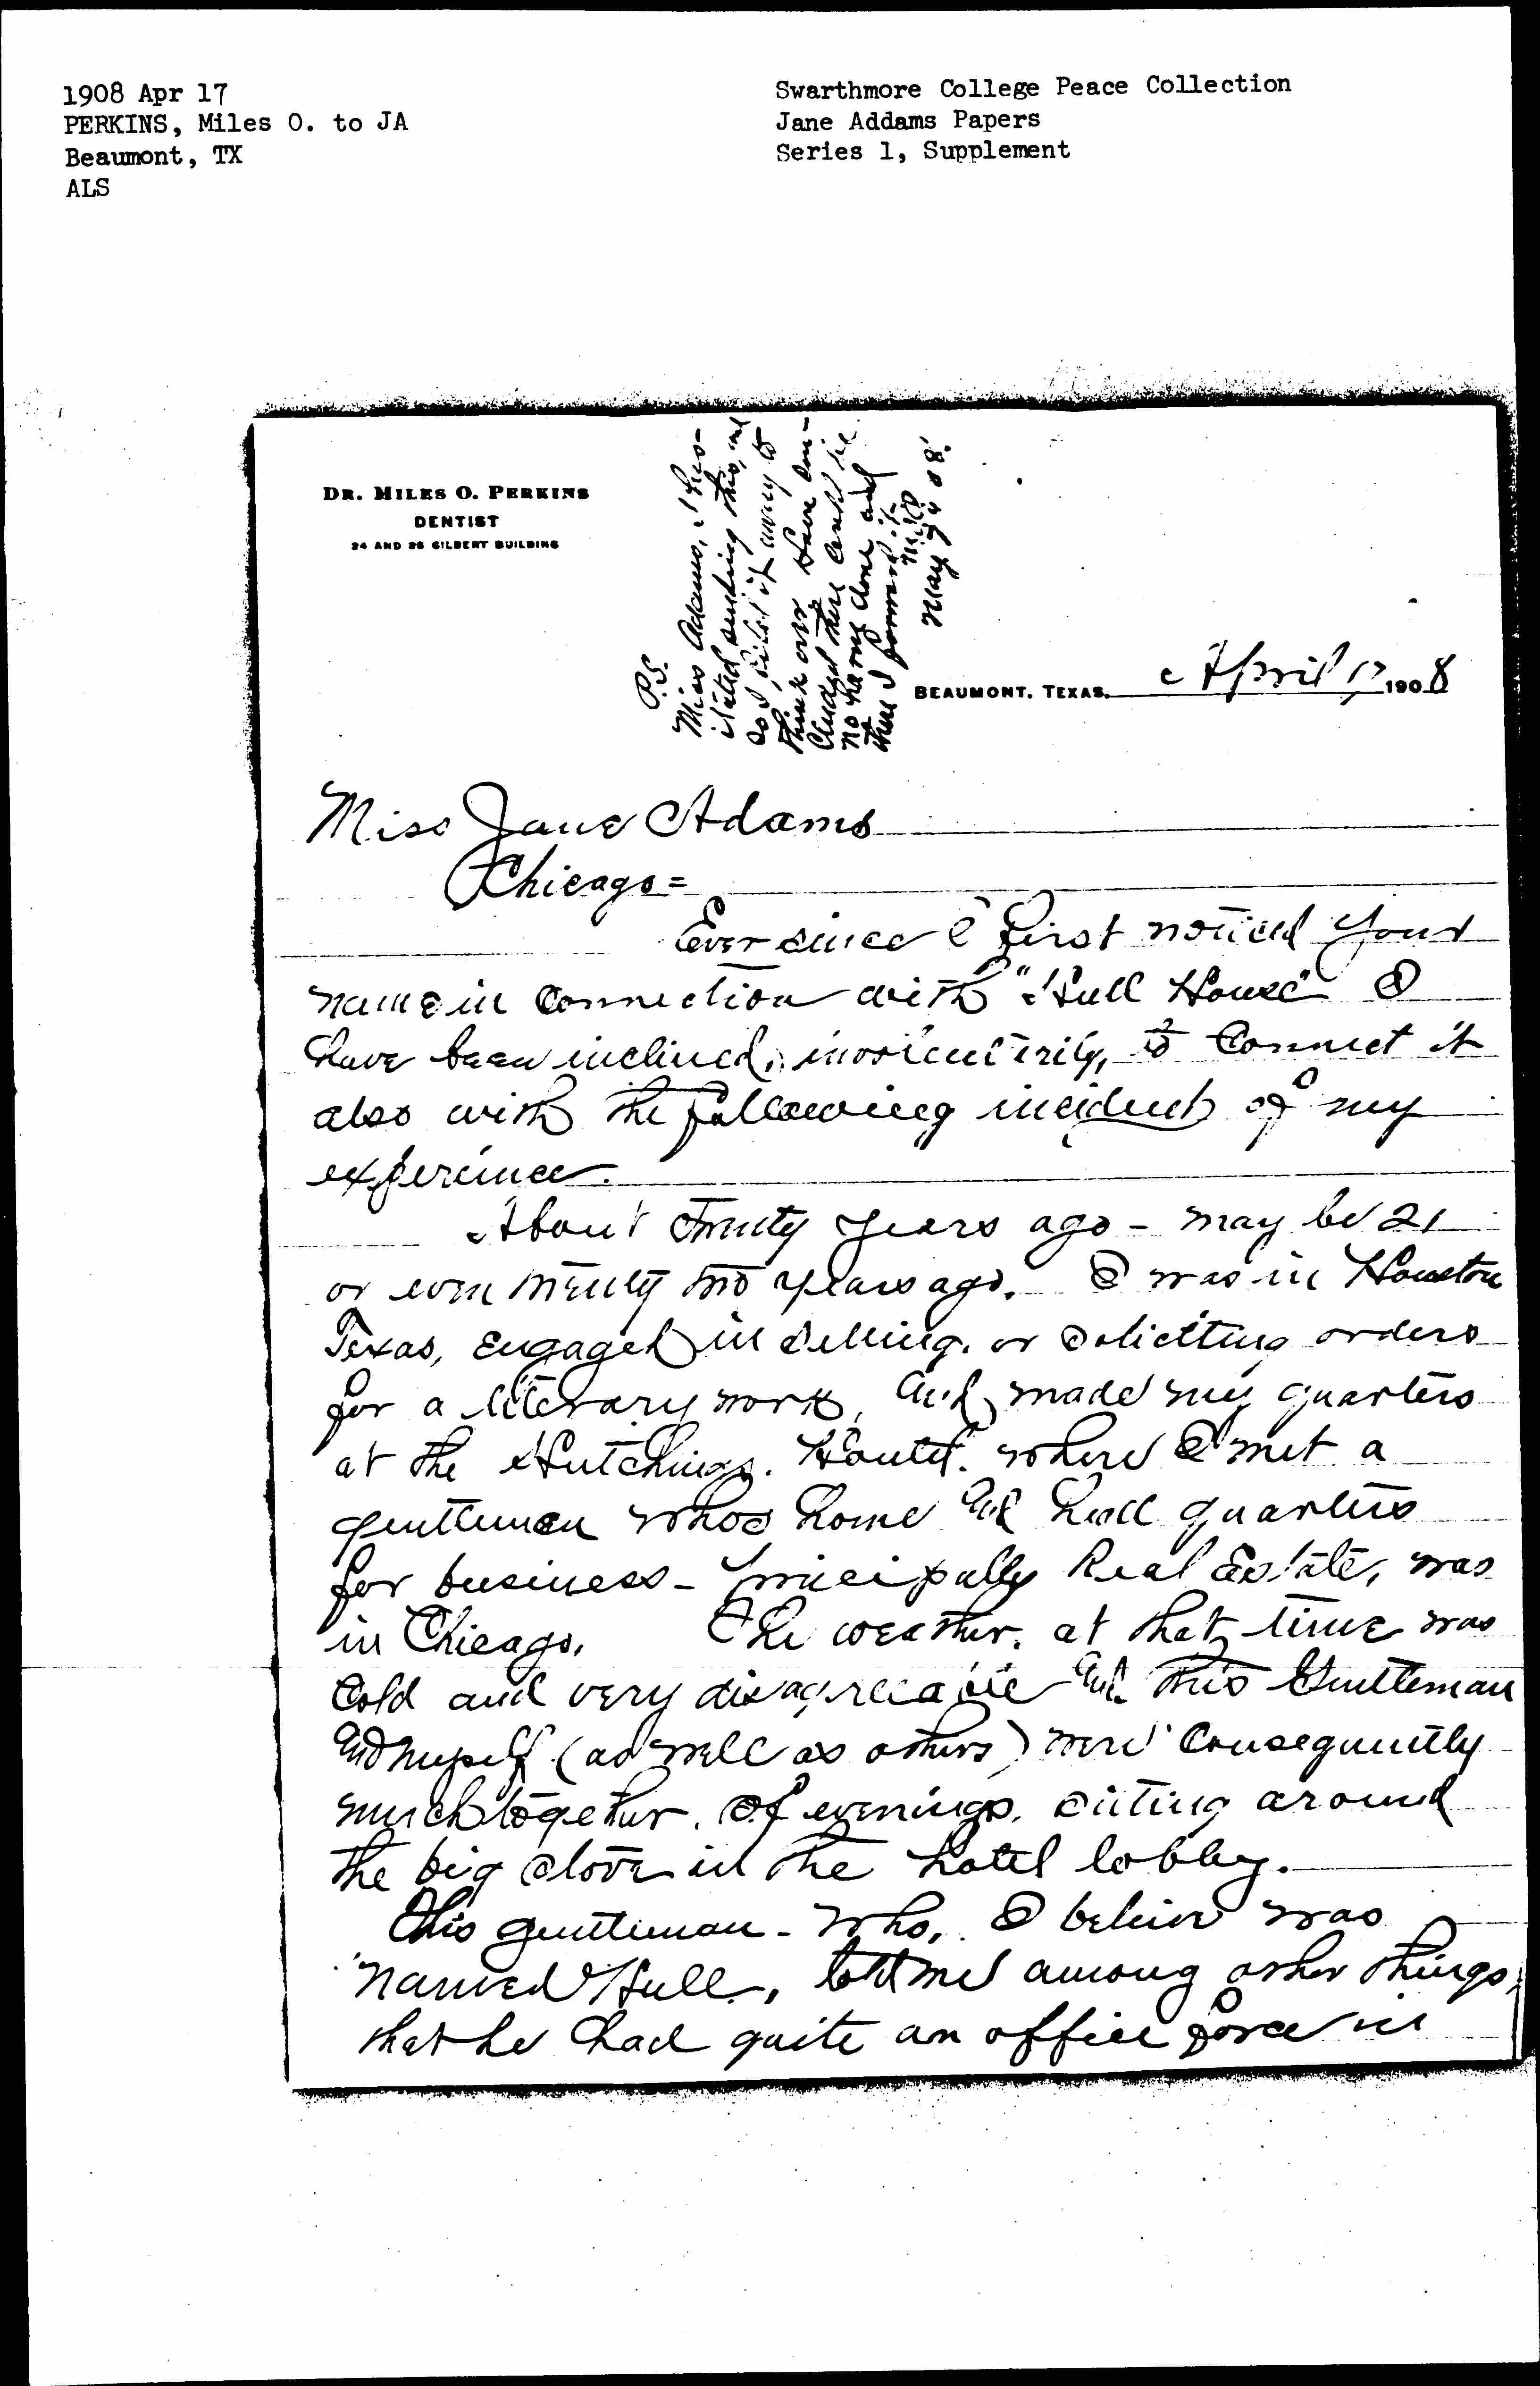 1908 Apr 17
PERKINS, Miles O. to JA
Beaumont, TX
ALS
Swarthmore College Peace Collection
Jane Addams Papers
Series 1, Supplement
DR. MILES O. PERKINS
DENTIST
24 AND 26 GILBERT BUILDING
P.S.
Miss Adams, I hes-
itated sending this, and
so I it away to
think over. Have con-
cluded there could be
no harm done and
thus I forward it.
M.O.P.
May 24 08.
BEAUMONT, TEXAS, April 17 1908
Miss Jane Adams
Chicago =
Ever since I first noticed your
name in connection with "Hull House" I
have been inclined, involuntarily, to connect it
also with the following incident of my
experience.
About Twenty years ago - may be 21
or even twenty two years ago. I was in Houston
Texas, engaged in selling, or solicitting orders
for a literary work, and made my quarters
at the Hutchings. House. where I met a
gentleman whos home and head quarters
for business - principally Real Estate, was
in Chicago. The weather, at that time was
cold and very disagreeable and this Gentleman
and myself (as well as others) were consequently
much together. Of evenings, sitting around
the big stove in the hotel lobby.
This gentleman - who, I believe was
named Hull, told me among other things,
that he had quite an office force in